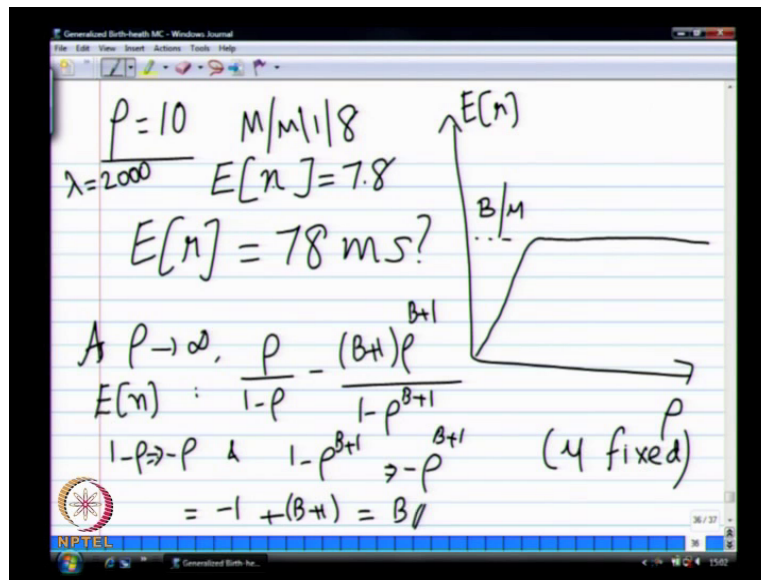 Generalized Birth-heath MC - Windows Journal
File Edit View Insert Actions Tools Help
ρ = 10 M/M/1/8
λ = 2000 E[n] = 7.8
E[r] = 78 ms?
E[r]
B/μ
ρ
(μ fixed)
A ρ → ∞,
E[n] : ρ/(1-ρ) - (B+1)ρ^(B+1)/(1-ρ^(B+1))
1-ρ ⇒ -ρ & 1-ρ^(B+1) ⇒ -ρ^(B+1)
= -1 + (B+1) = B
NPTEL
36/37
36
Generalized Birth-he...
1502